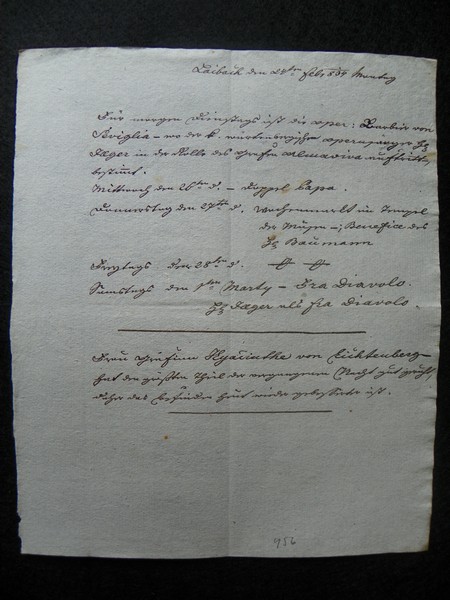 Laibach den 24ten Feb. 834 Montag
Für morgen Dienstags ist die Oper: Barbier von
Seviglia – wo der k. würtembergische Opernsänger Hr
Jäger in der Rolle des Grafen Almaviva auftritt,
bestimmt.
Mittwoch den 26ten d. – Doppel Papa.
Donnerstag den 27ten d. Wochenmarkt im Tempel
der Musen –; Benefice des
Hr Baumann
Freytags den 28ten d.
Samstags den 1ten Marty – Fra Diavolo.
Hr Jäger als Fra Diavolo.
Frau Gräfinn Hyacinthe von Lichtenberg
hat den größten Theil der vergangenen Nacht gut
daher das Befinden heut wieder gebessert ist.
956